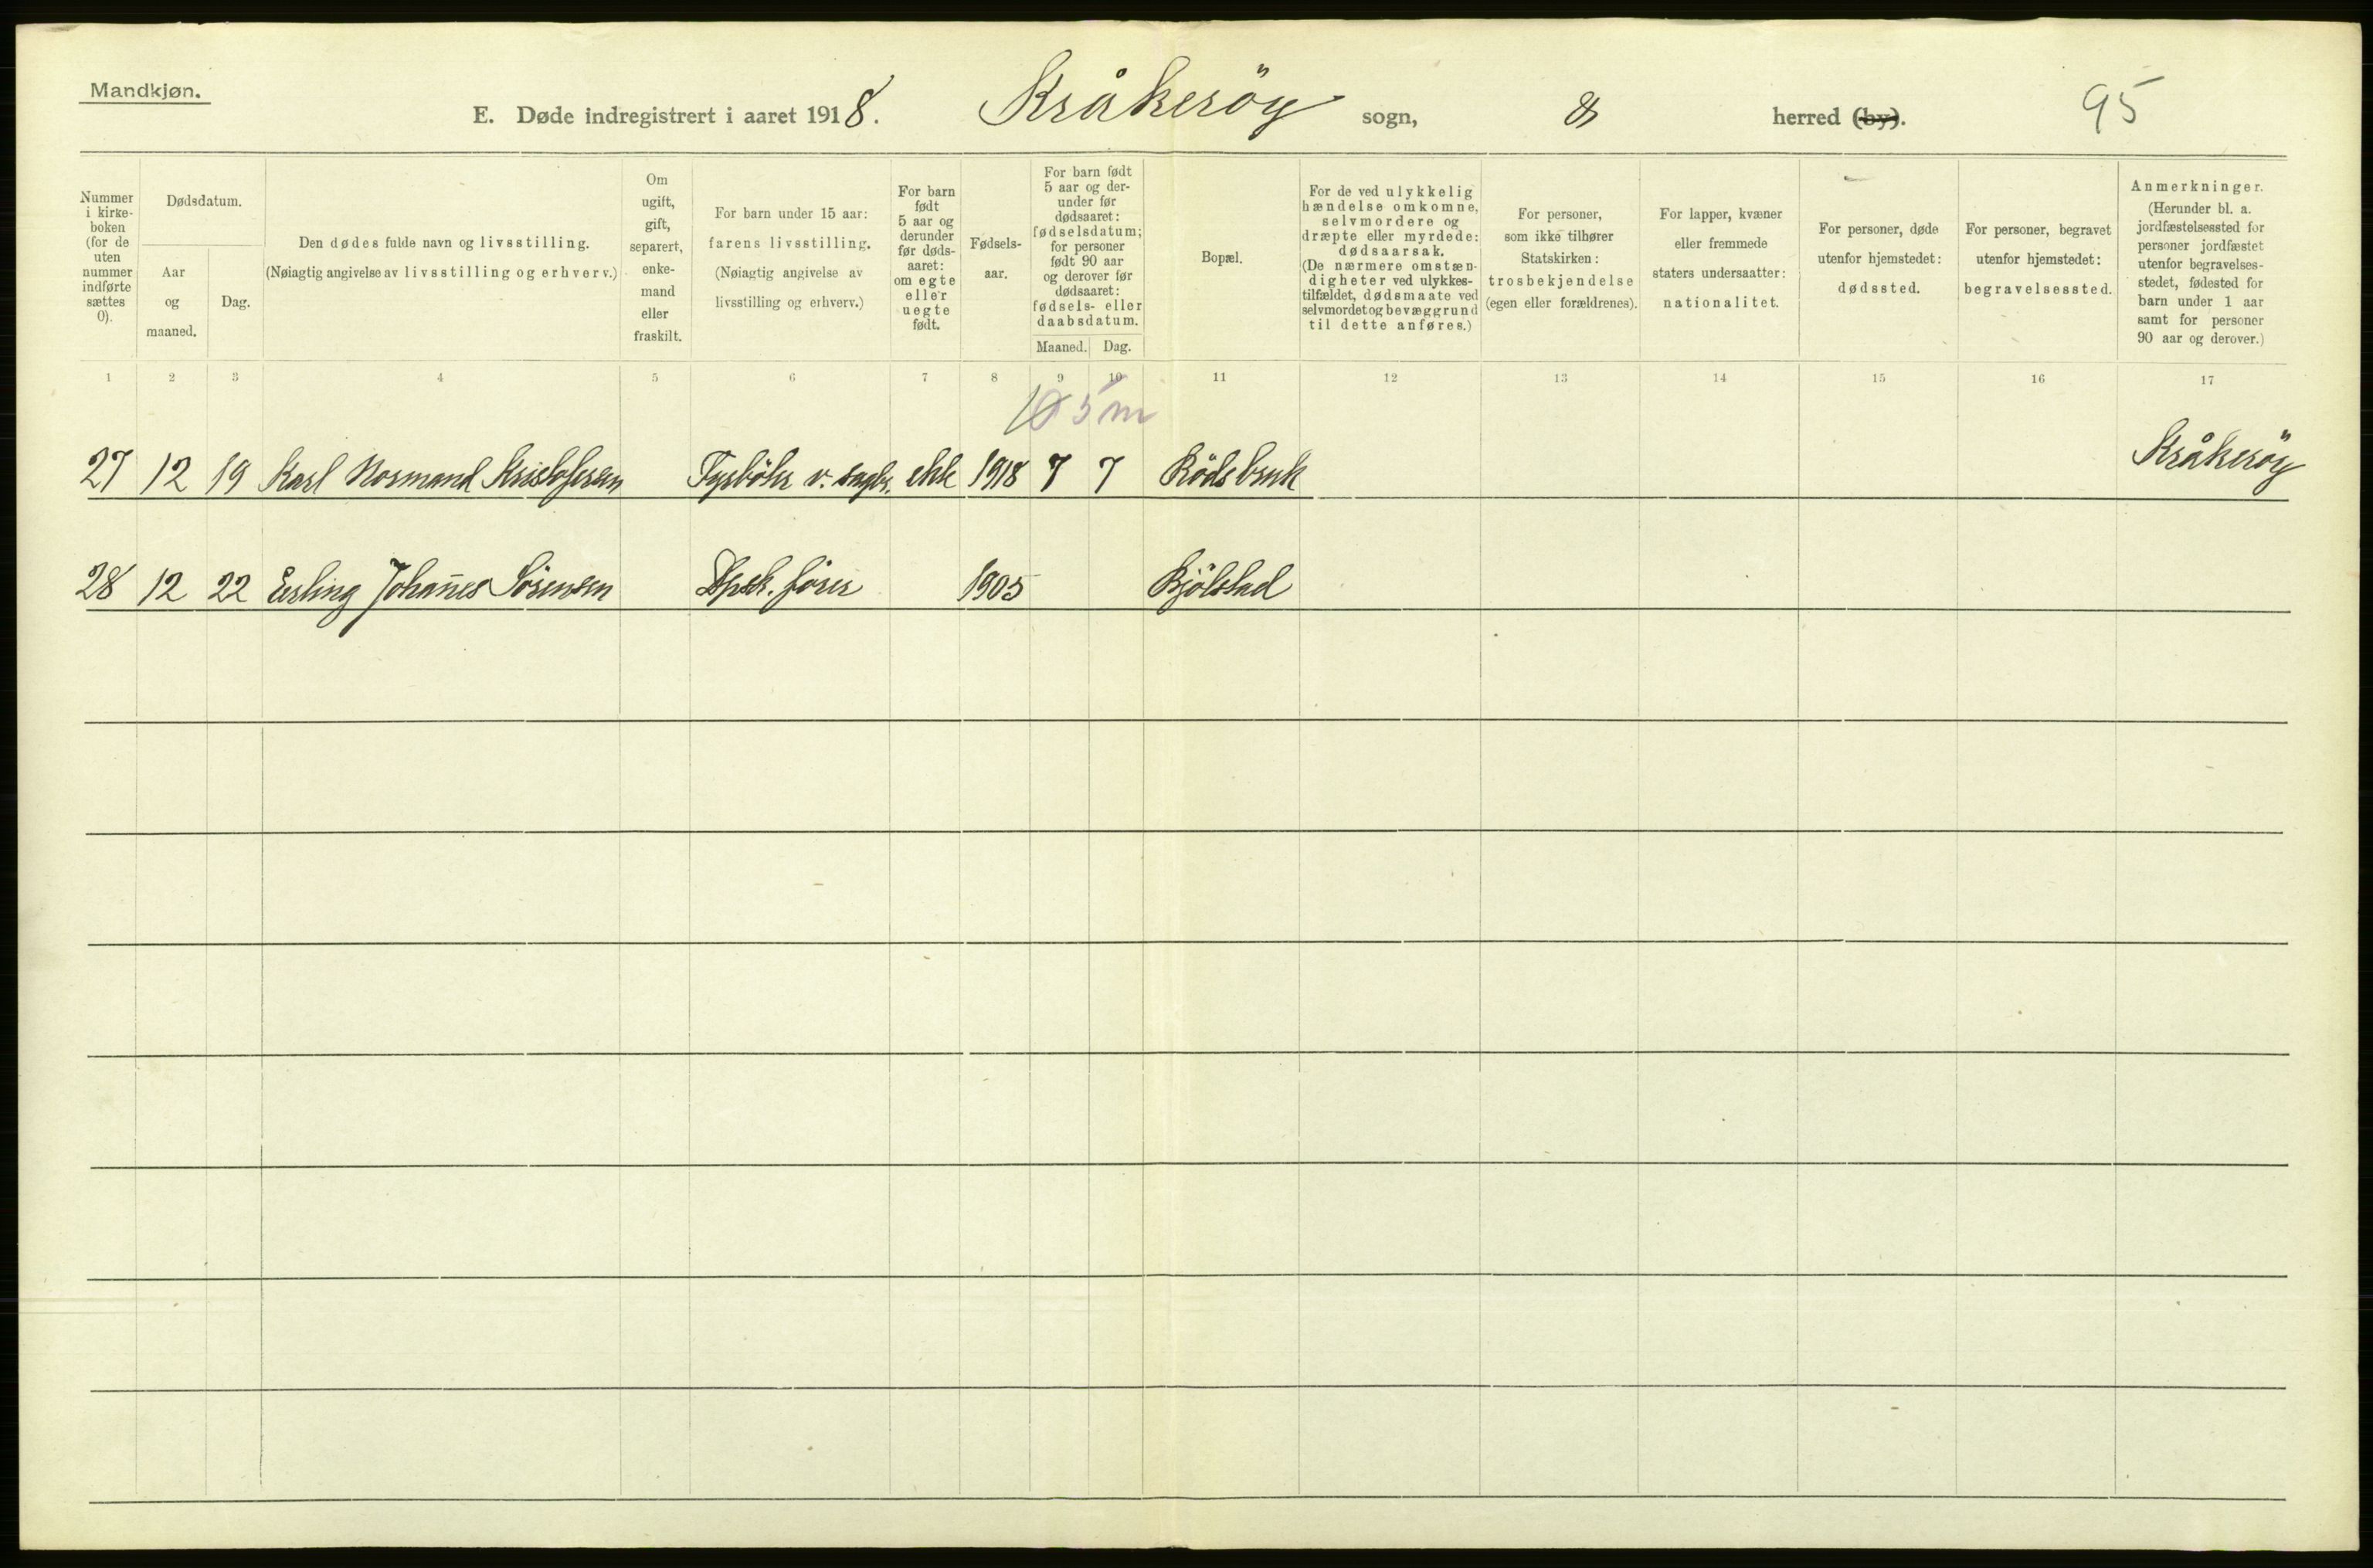 Mandkjøn.
E. Døde indregistrert i aaret 1918. Kråkeröy sogn, herred (by). 95
Nummer i kirke-boken (for de uten nummer indførte sættes 0).
Dødsdatum.
Aar og maaned.
Dag.
Den dødes fulde navn og livsstilling.
(Nøiagtig angivelse av livsstilling og erhverv.)
Om ugift, gift, separert, enke-mand eller fraskilt.
For barn under 15 aar: farens livsstilling.
(Nøiagtig angivelse av livsstilling og erhverv.)
For barn født 5 aar og derunder før døds-aaret: om egte eller uegte født.
Fødsels-aar.
For barn født 5 aar og der-under før dødsaaret: fødselsdatum; for personer født 90 aar og derover før dødsaaret: fødsels- eller daabsdatum.
Maaned. Dag.
Bopæl.
For de ved ulykkelig hændelse omkomne, selvmordere og dræpte eller myrdede: dødsaarsak.
(De nærmere omstæn-digheter ved ulykkes-tilfældet, dødsmaate ved selvmordet og bevæggrund til dette anføres.)
For personer, som ikke tilhører Statskirken: trosbekjendelse (egen eller forældrenes).
For lapper, kvæner eller fremmede staters undersaatter: nationalitet.
For personer, døde utenfor hjemstedet: dødssted.
For personer, begravet utenfor hjemstedet: begravelsessted.
Anmerkninger.
(Herunder bl. a. jordfæstelsessted for personer jordfæstet utenfor begravelses-stedet, fødested for barn under 1 aar samt for personer 90 aar og derover.)
1 2 3 4 5 6 7 8 9 10 11 12 13 14 15 16 17
5 m
27 12 19 Karl Normand Kristofersen Fyrböter v. sagbr. ekte 1918 7 7 Rödsbruk Kråkeröy
28 12 22 Erling Johannes Sörensen Dpsk. förer 1905 Bjölstad